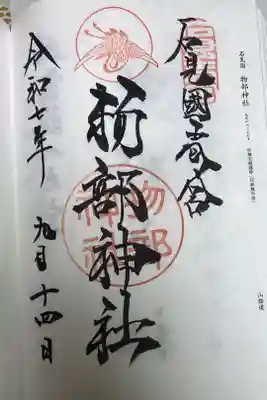 石見国 物部神社
山陰道
石見國壹宮
物部神社
物部神社
令和七年 九月 十四日